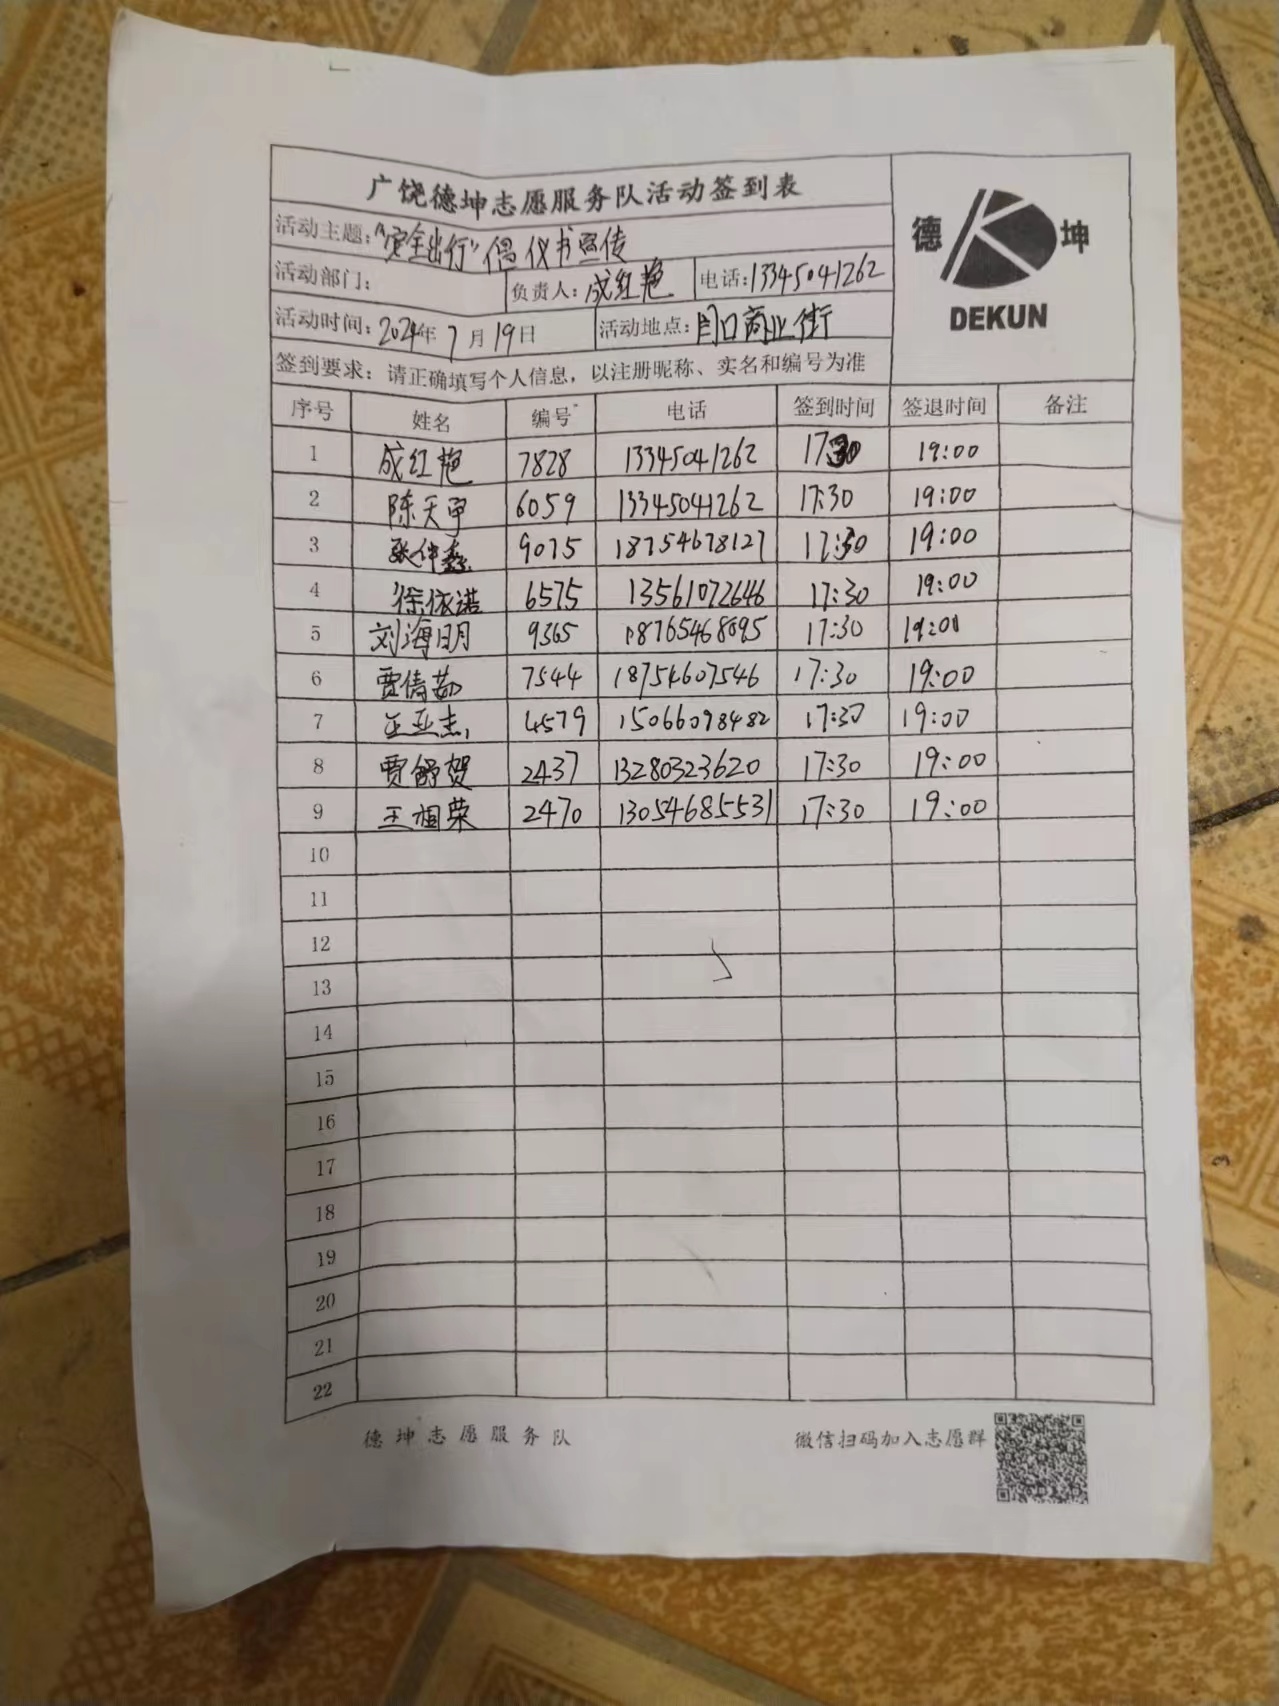 广饶德坤志愿服务队活动签到表
德 坤
DEKUN
活动主题："安全出行"倡仪书宣传
活动部门： 负责人：成红艳 电话：13345041262
活动时间：2024年7月19日 活动地点：闫口商业街
签到要求：请正确填写个人信息，以注册昵称、实名和编号为准
序号 姓名 编号 电话 签到时间 签退时间 备注
1 成红艳 7828 13345041262 17:30 19:00
2 陈天甲 6059 13345041262 17:30 19:00
3 9075 18754678127 17:30 19:00
4 徐依诺 6575 13561072646 17:30 19:00
5 刘海明 9365 18765468695 17:30 19:00
6 贾倩茹 7544 18754607546 17:30 19:00
7 王亚杰 4579 15066098482 17:30 19:00
8 贾舒贺 2437 13280323620 17:30 19:00
9 王相荣 2470 13054685531 17:30 19:00
10
11
12
13
14
15
16
17
18
19
20
21
22
德坤志愿服务队 微信扫码加入志愿群